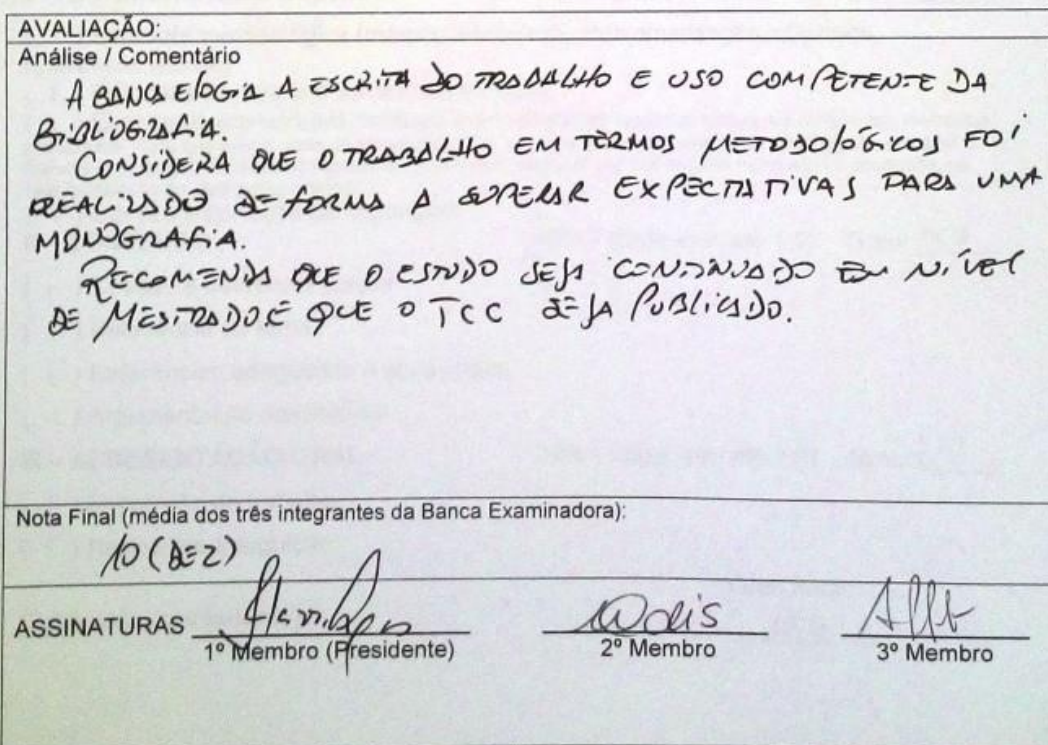 AVALIAÇÃO:
Análise / Comentário
A BANCA ELOGIA A ESCRITA DO TRABALHO E USO COMPETENTE DA
BIBLIOGRAFIA.
CONSIDERA QUE O TRABALHO EM TERMOS METODOLÓGICOS FOI
REALIZADO DE FORMA A SUPERAR EXPECTATIVAS PARA UMA
MONOGRAFIA.
RECOMENDA QUE O ESTUDO SEJA CONTINUADO EM NÍVEL
DE MESTRADO E QUE O TCC SEJA PUBLICADO.
Nota Final (média dos três integrantes da Banca Examinadora):
10 (DEZ)
ASSINATURAS
1º Membro (Presidente) 2º Membro 3º Membro